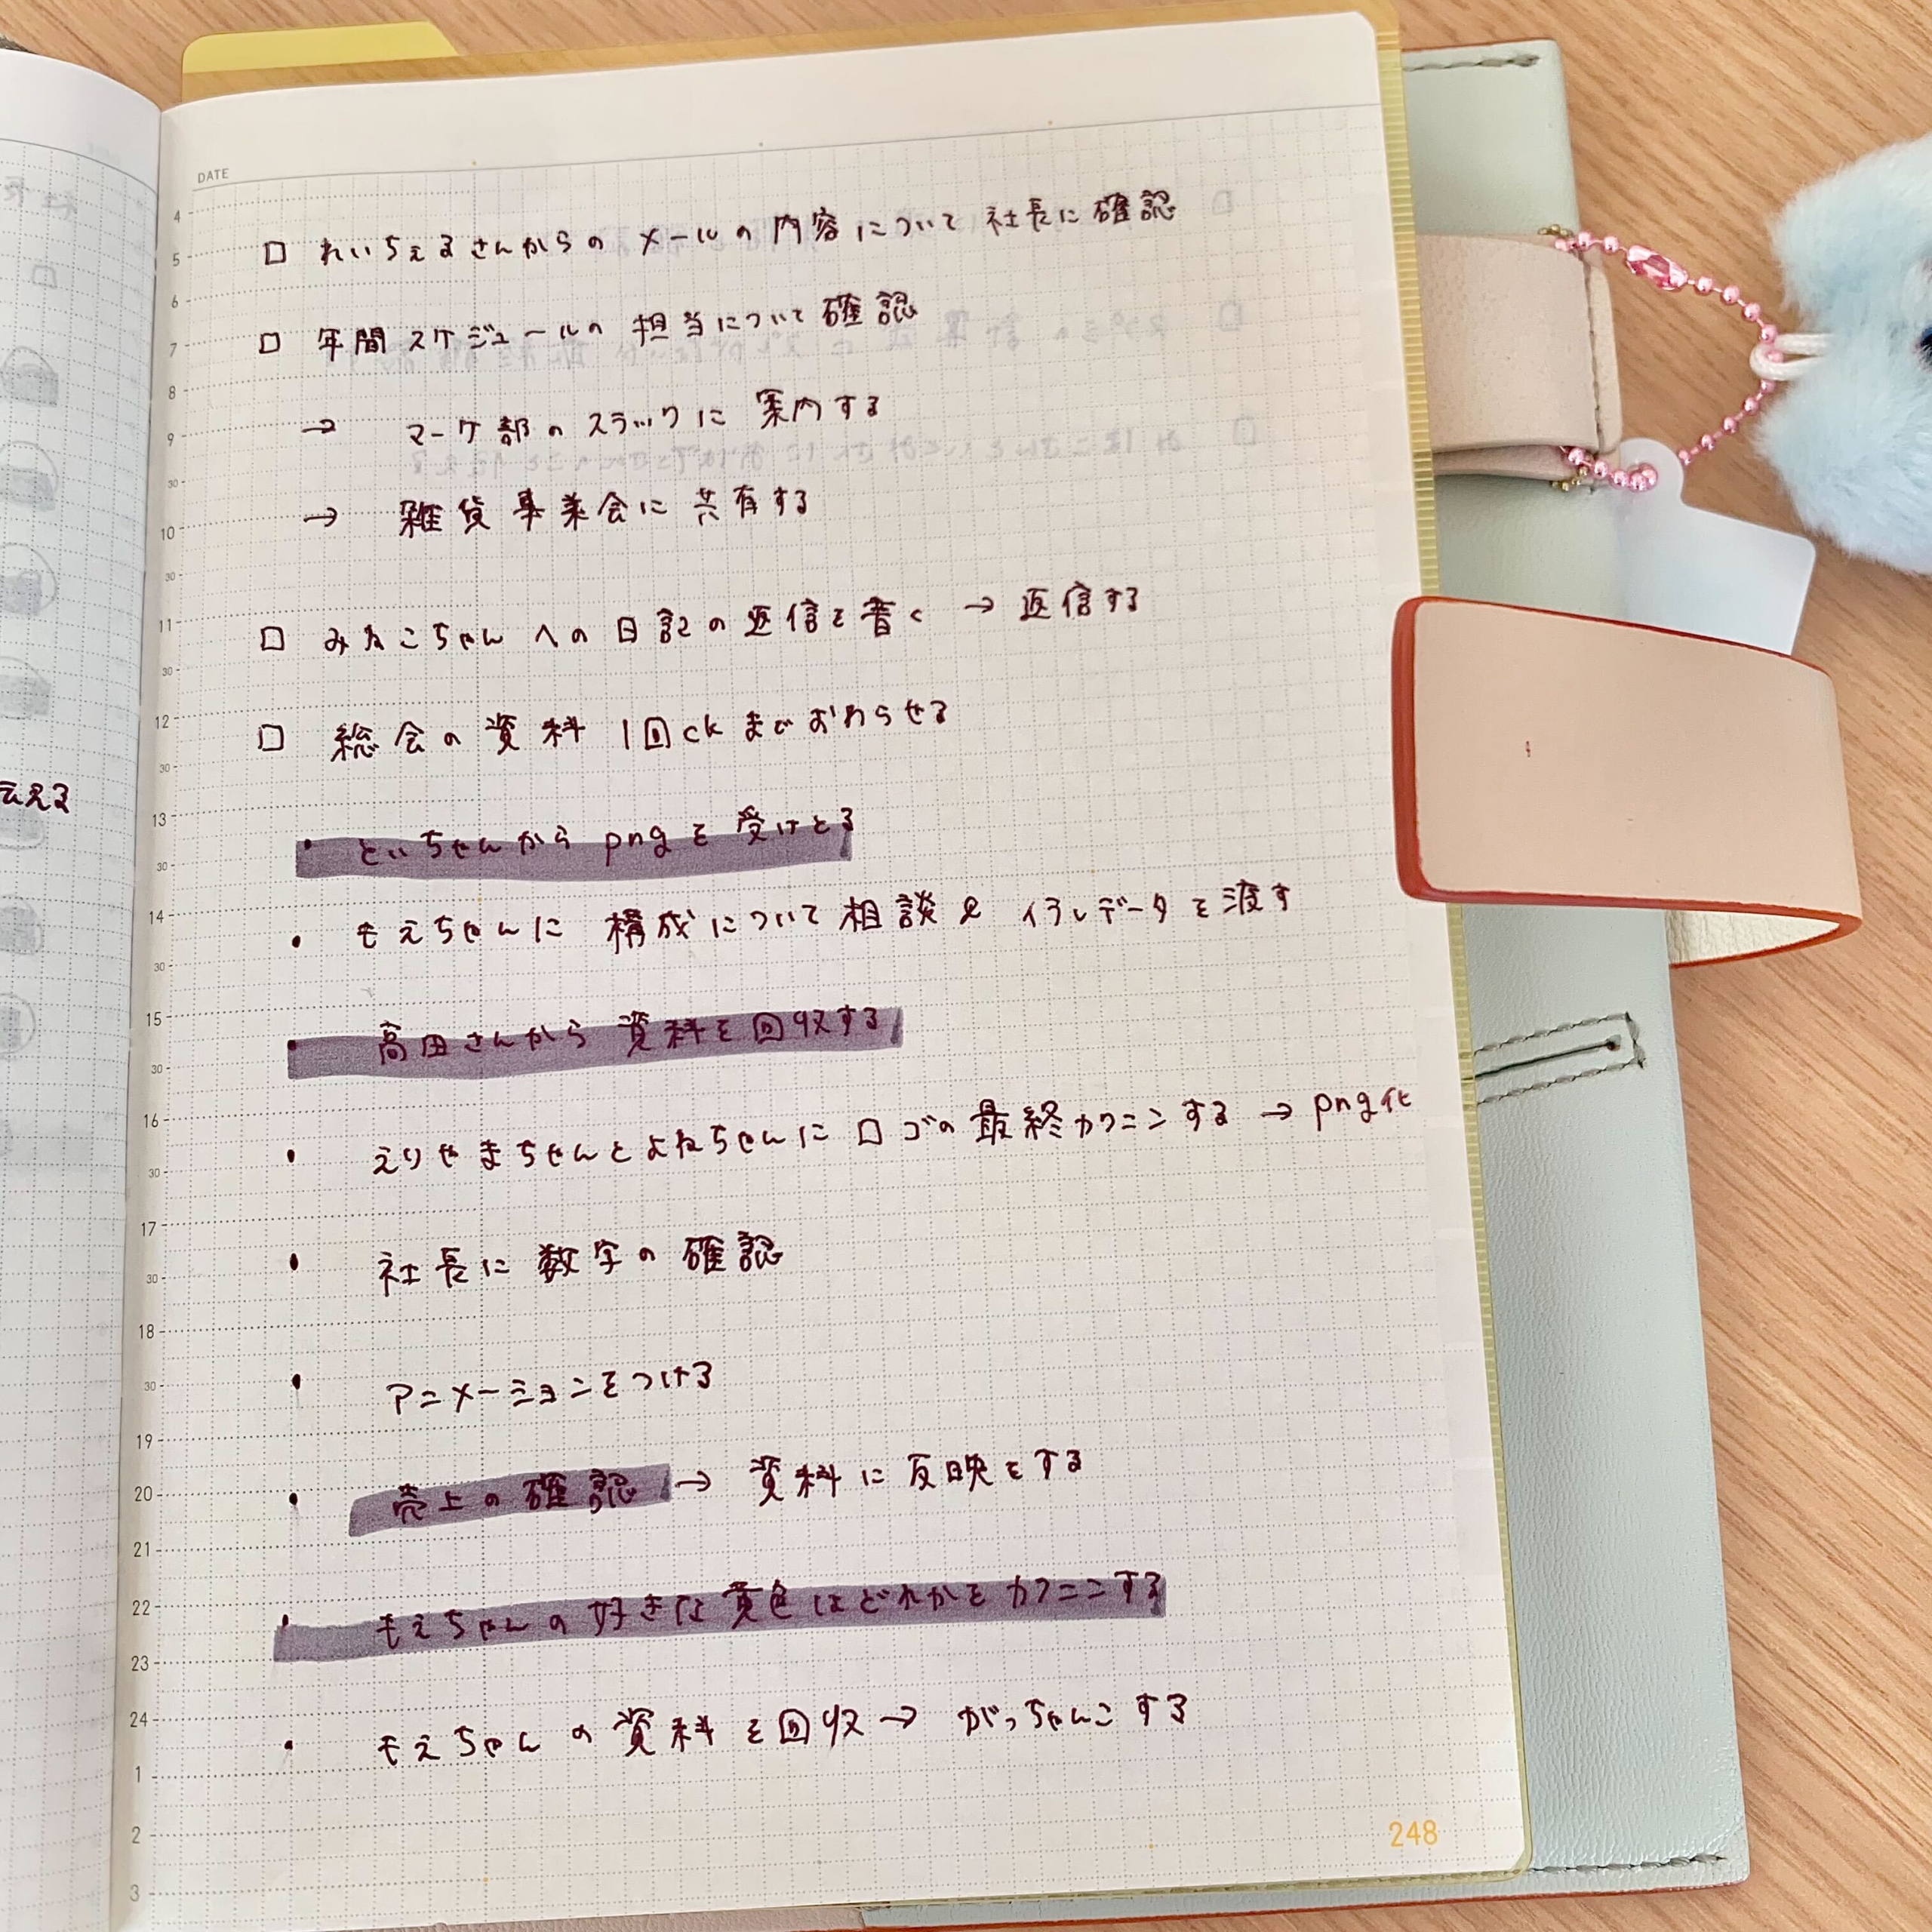 DATE
4
5
6
7
8
9
30
10
30
11
30
12
30
13
30
14
30
15
30
16
30
17
30
18
30
19
20
21
22
23
24
1
2
3
□ れいちぇるさんからの メールの 内容について 社長に 確認
□ 年間 スケジュールの 担当について 確認
→ マーケ部の スラックに 案内する
→ 雑貨事業会に 共有する
□ みねこちゃん への 日記の 返信を書く → 返信する
□ 総会の 資料 1回ck までおわらせる
・ といちゃんから pngを 受けとる
・ もえちゃんに 構成について 相談 & イラレデータを渡す
・ 高田さんから 資料を回収する
・ えりやまちゃんとよねちゃんに ロゴの 最終カクニンする → png化
・ 社長に 数字の 確認
・ アニメーションをつける
・ 売上の確認 → 資料に反映をする
・ もえちゃんの 好きな 黄色はどれかを カクニンする
・ もえちゃんの 資料を回収→ がっちゃんこする
248
える